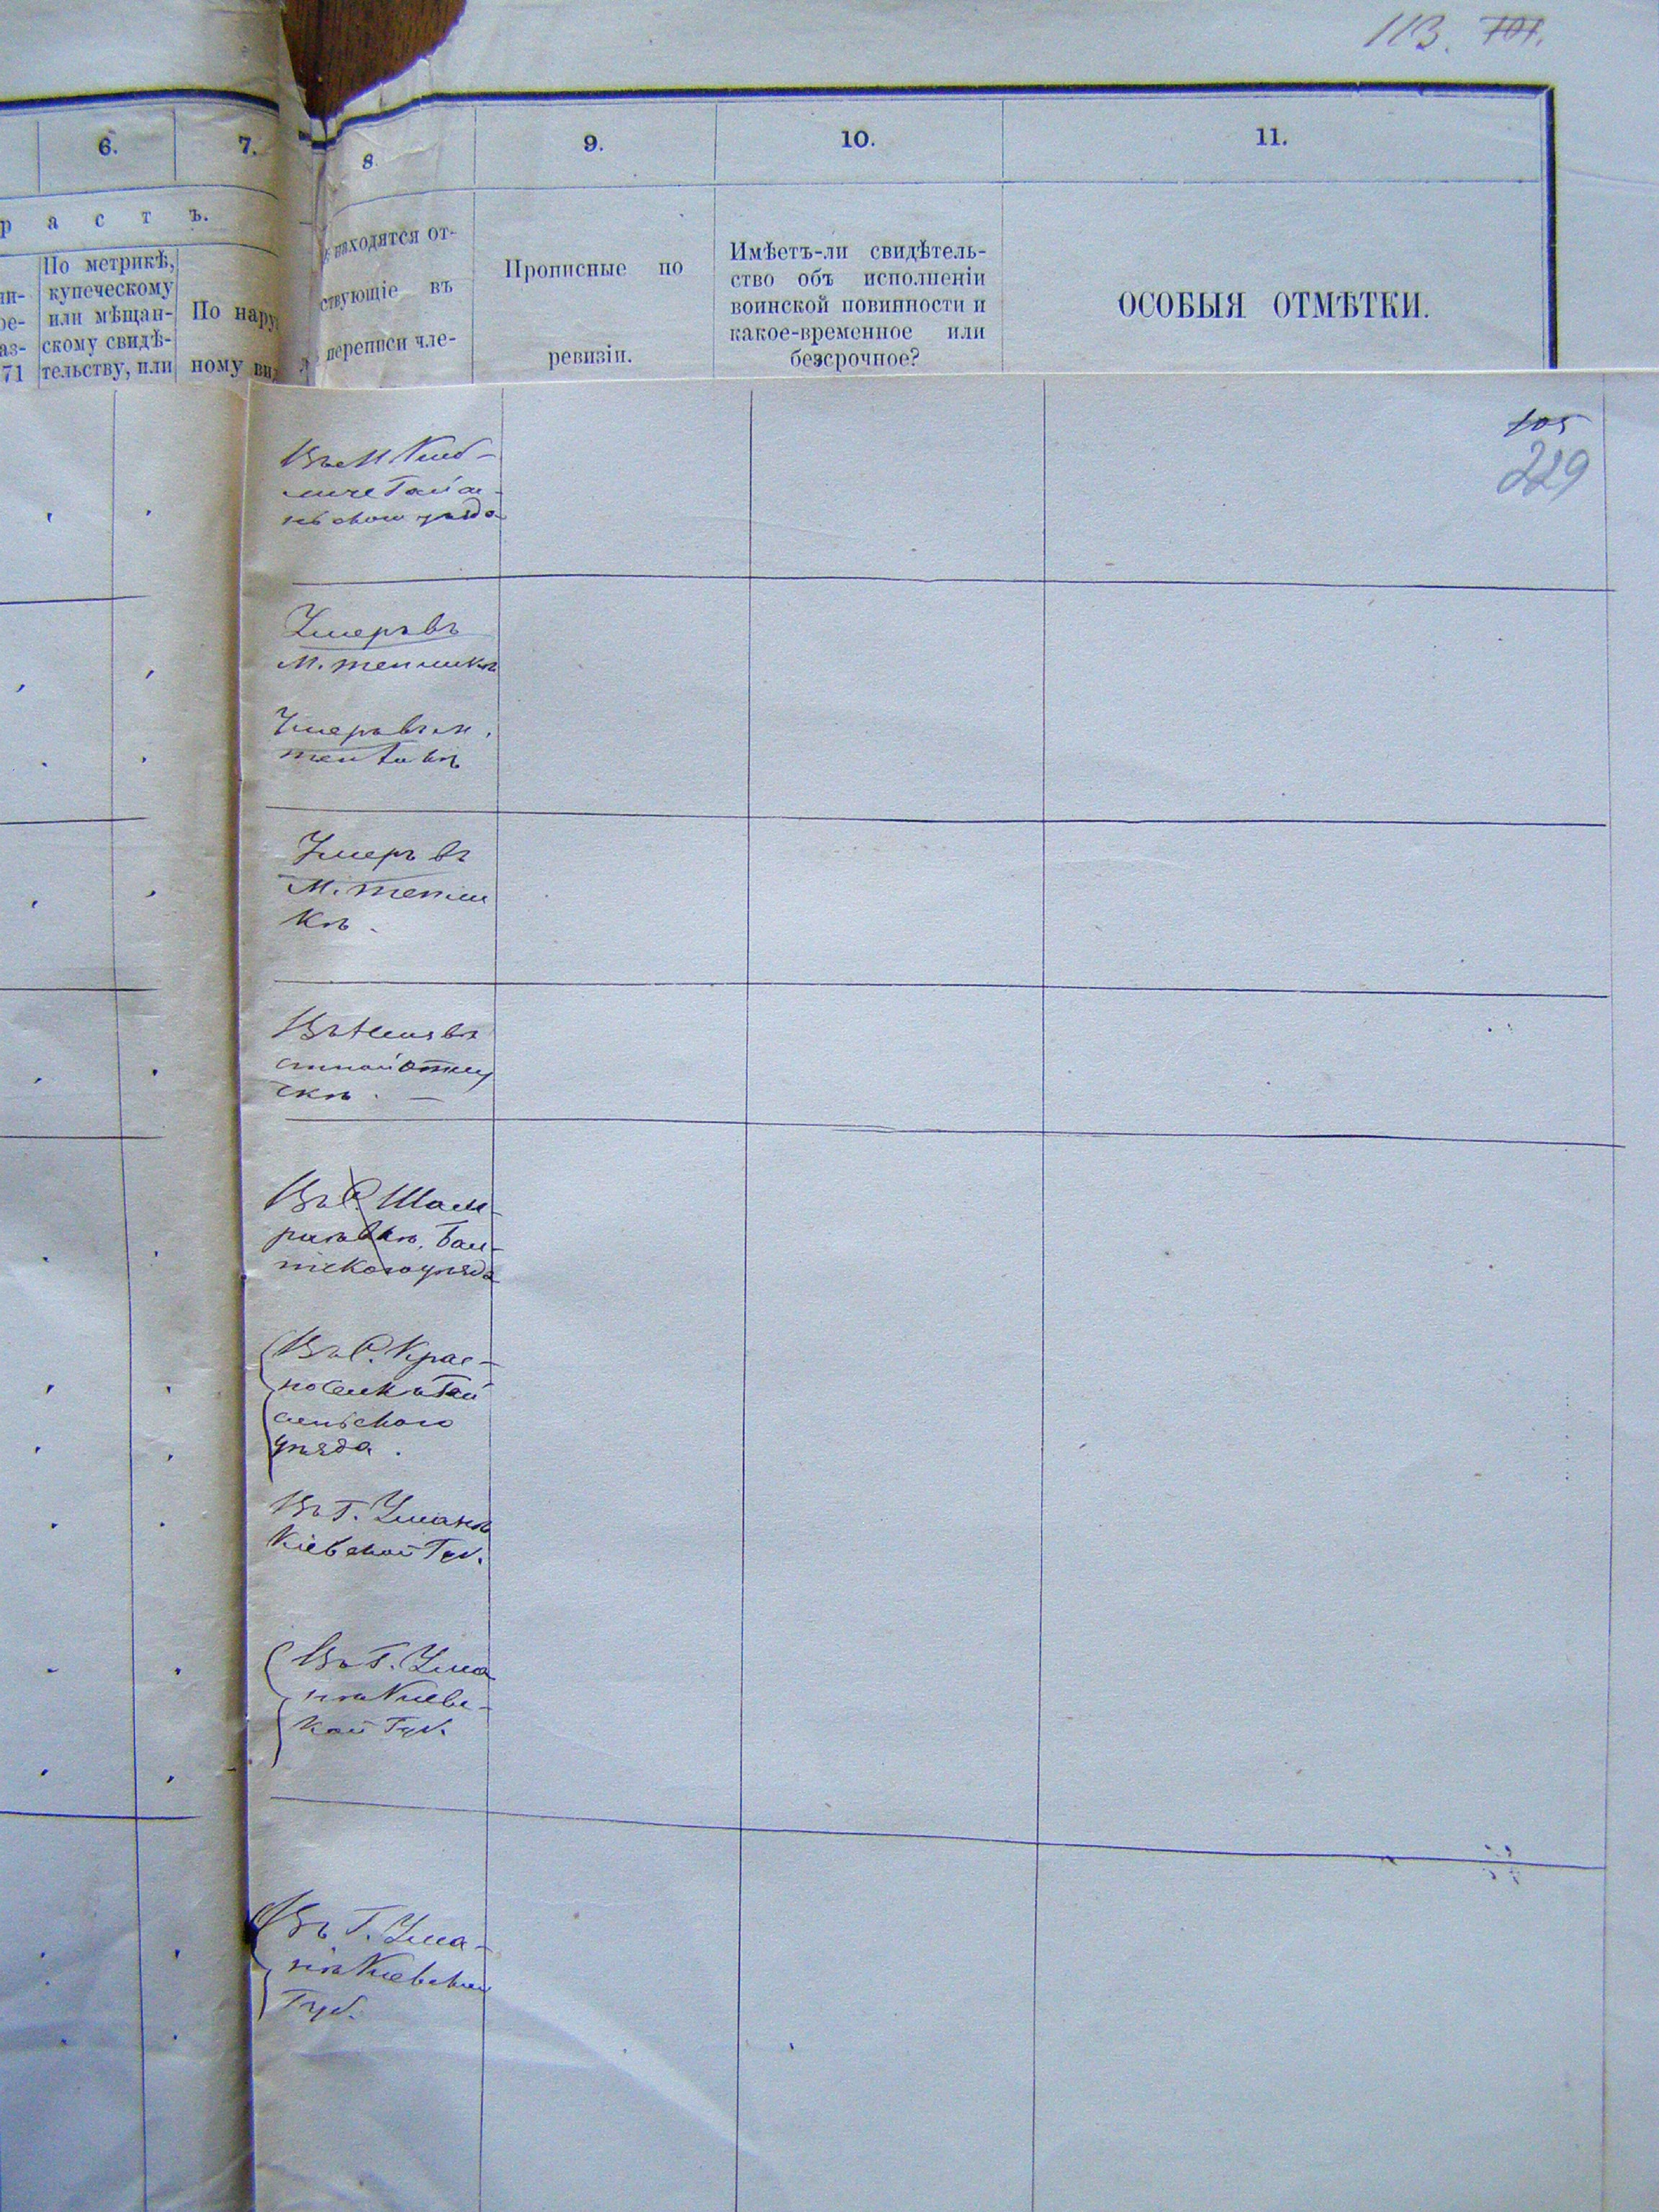 113. 101.
6.
7.
8.
9.
10.
11.
р а с т ъ.
По метрикѣ,
купеческому
или мѣщан-
скому свидѣ-
тельству, или
ин-
ре-
аз-
71
По нару
ному ви
находятся от-
ствующіе въ
переписи чле-
Прописные по
ревизіи.
Имѣетъ-ли свидѣтель-
ство объ исполненіи
воинской повинности и
какое-временное или
безсрочное?
ОСОБЫЯ ОТМѢТКИ.
105
229
уѣзда
Умеръ въ
М. тепликѣ
Умеръ въ м.
Умеръ въ
М. тепли
кѣ
Въ
скѣ. —
Въ С. Шам-
раевкѣ, Бал-
тскаго уѣзда
Въ С. Крас-
носилкѣ Гай
сенскаго
уѣзда.
Въ Г. Уманѣ
Кіевской Губ.
Въ Г. Ума
нѣ Кіевс-
кой Губ.
Въ Г. Ума-
нѣ Кіевской
Губ.